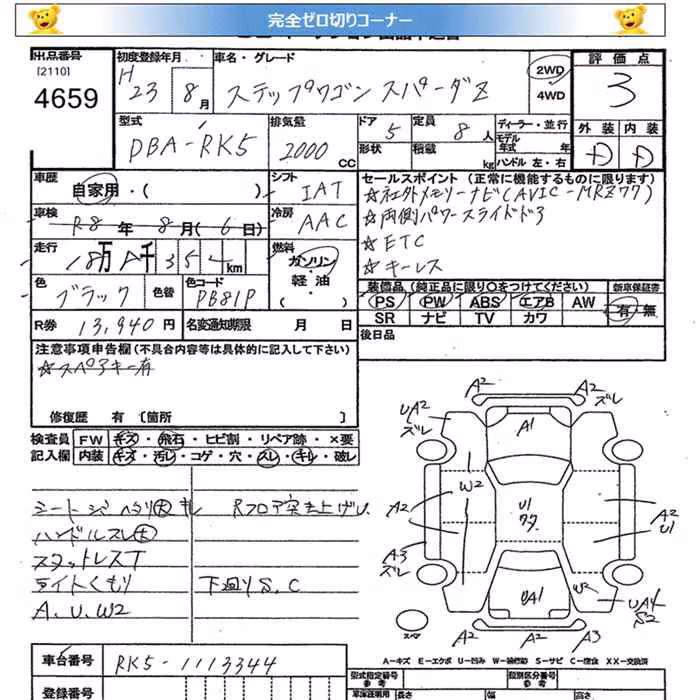 完全ゼロ切りコーナー
出品番号
[2110]
4659
初度登録年月
H 23 8月
車名・グレード
ステップワゴン スパーダZ
2WD
4WD
評価点
3
外装 内装
D D
型式
DBA-RK5
排気量
2000 CC
ドア 5
形状
定員 8人
積蔵 kg
ディーラー・並行
モデル年式 年
ハンドル 左・右
車歴
自家用・( )
シフト
IAT
車検
R8年 8月(6日)
冷房
AAC
走行
18万 千 35 km
燃料
ガソリン・軽油・( )
色
ブラック
色替
色コード
PB81P
R券 13,940円
名変通知期限 月 日
セールスポイント (正常に機能するものに限ります)
☆社外メモリーナビ(AVIC-MRZ77)
☆両側パワースライドドア
☆ETC
☆キーレス
装備品(純正品に限り○をつけてください)
新車保証書
PS PW ABS エアB AW
SR ナビ TV カワ
有・無
後日品
注意事項申告欄(不具合内容等は具体的に記入して下さい)
☆スペアキー有
修復歴 有 [箇所 ]
検査員記入欄
FW キズ・飛石・ヒビ割・リペア跡・×要
内装 キズ・汚レ・コゲ・穴・スレ・キレ・破レ
シートシワヘタリ大キレ
Rフロア突き上げU.
ハンドルスレ大
スタットレスT
ライトくもり
下廻りS.C
A.U.W2
A2
A2
ズレ
UA2
ズレ
A1
W2
A2
U1
A2
U1
A3
ズレ
W2
UA1
UA4
S2
スペア
A2
A2
A3
A-キズ E-エクボ U-凹み W-補修跡 S-サビ C-腐食 XX-交換済
車台番号
RK5-1113344
登録番号
型式指定番号
参考
類別区分番号
参考
車庫証明用
長さ
幅
高さ